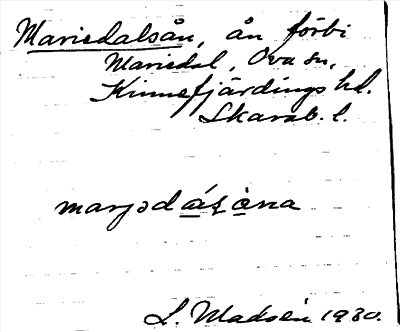 Mariedalsån, ån förbi
Mariedal, Ova sn,
Kinnefjärdings hd.
Skarab. l.
marjədálsə̀na
L. Madsén 1930.